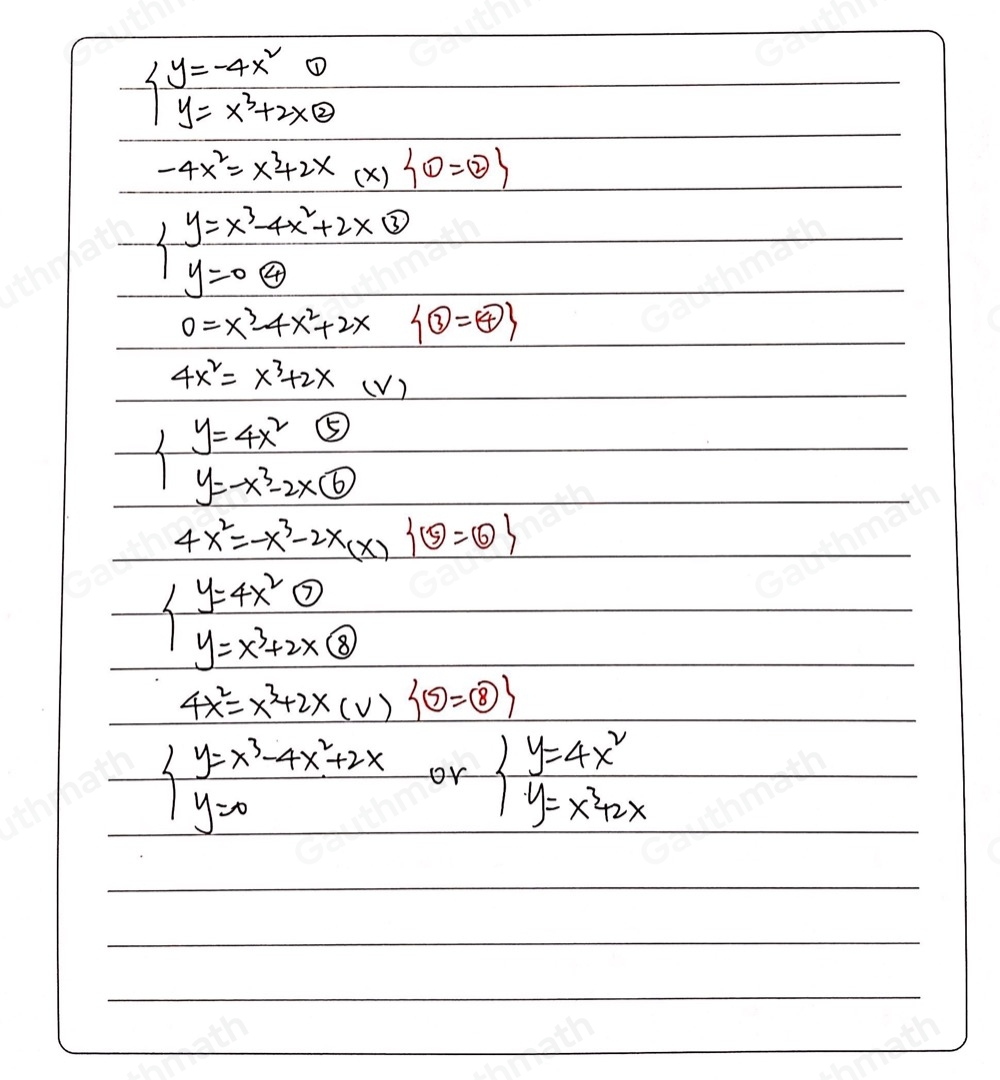 { y=-4x² ①
y= x³+2x ②
-4x²= x³+2x (x) {①=②}
{ y=x³-4x²+2x ③
y=0 ④
0=x³-4x²+2x {③=④}
4x²= x³+2x (V)
{ y=4x² ⑤
y=-x³-2x ⑥
4x²=-x³-2x (x) {⑤=⑥}
{ y=4x² ⑦
y=x³+2x ⑧
4x²=x³+2x (V) {⑦=⑧}
{ y=x³-4x²+2x or { y=4x²
y=0 y=x³+2x
Gauthmath